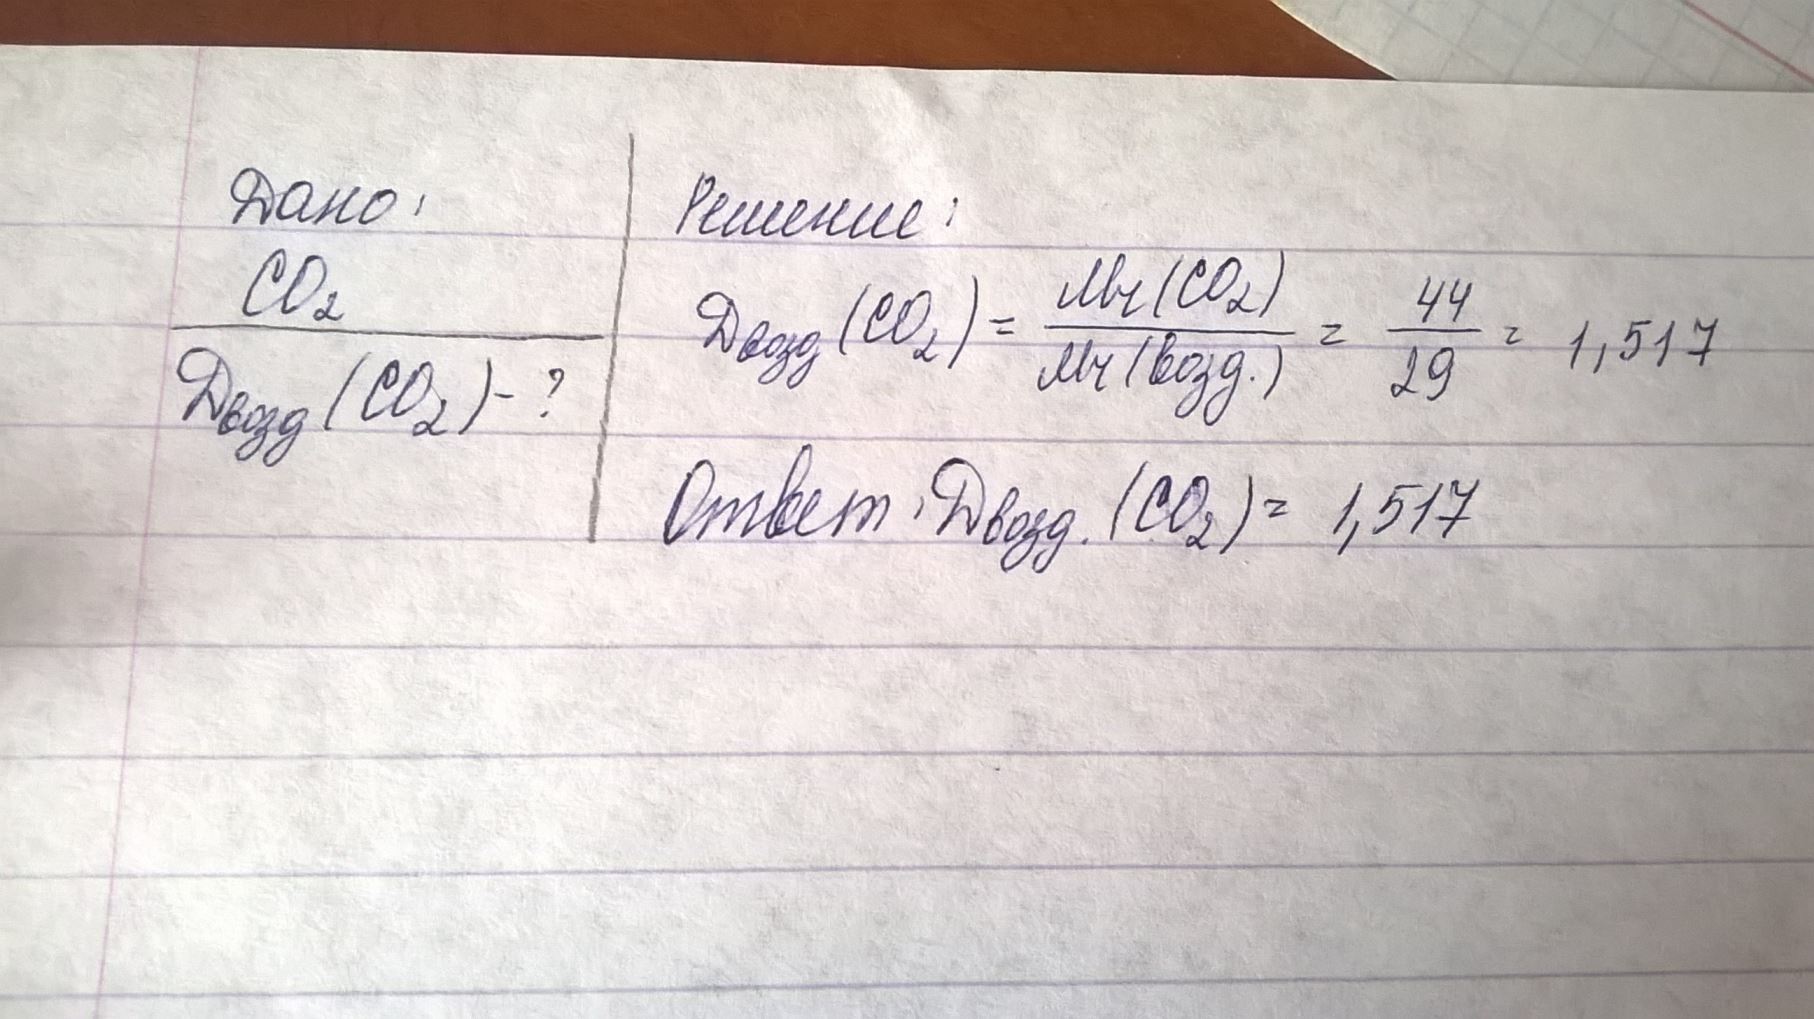 Дано:
CO₂
Двозд (CO₂) - ?
Решение:
Двозд (CO₂) = Mr (CO₂) / Mr (возд.) = 44 / 29 = 1,517
Ответ: Двозд. (CO₂) = 1,517